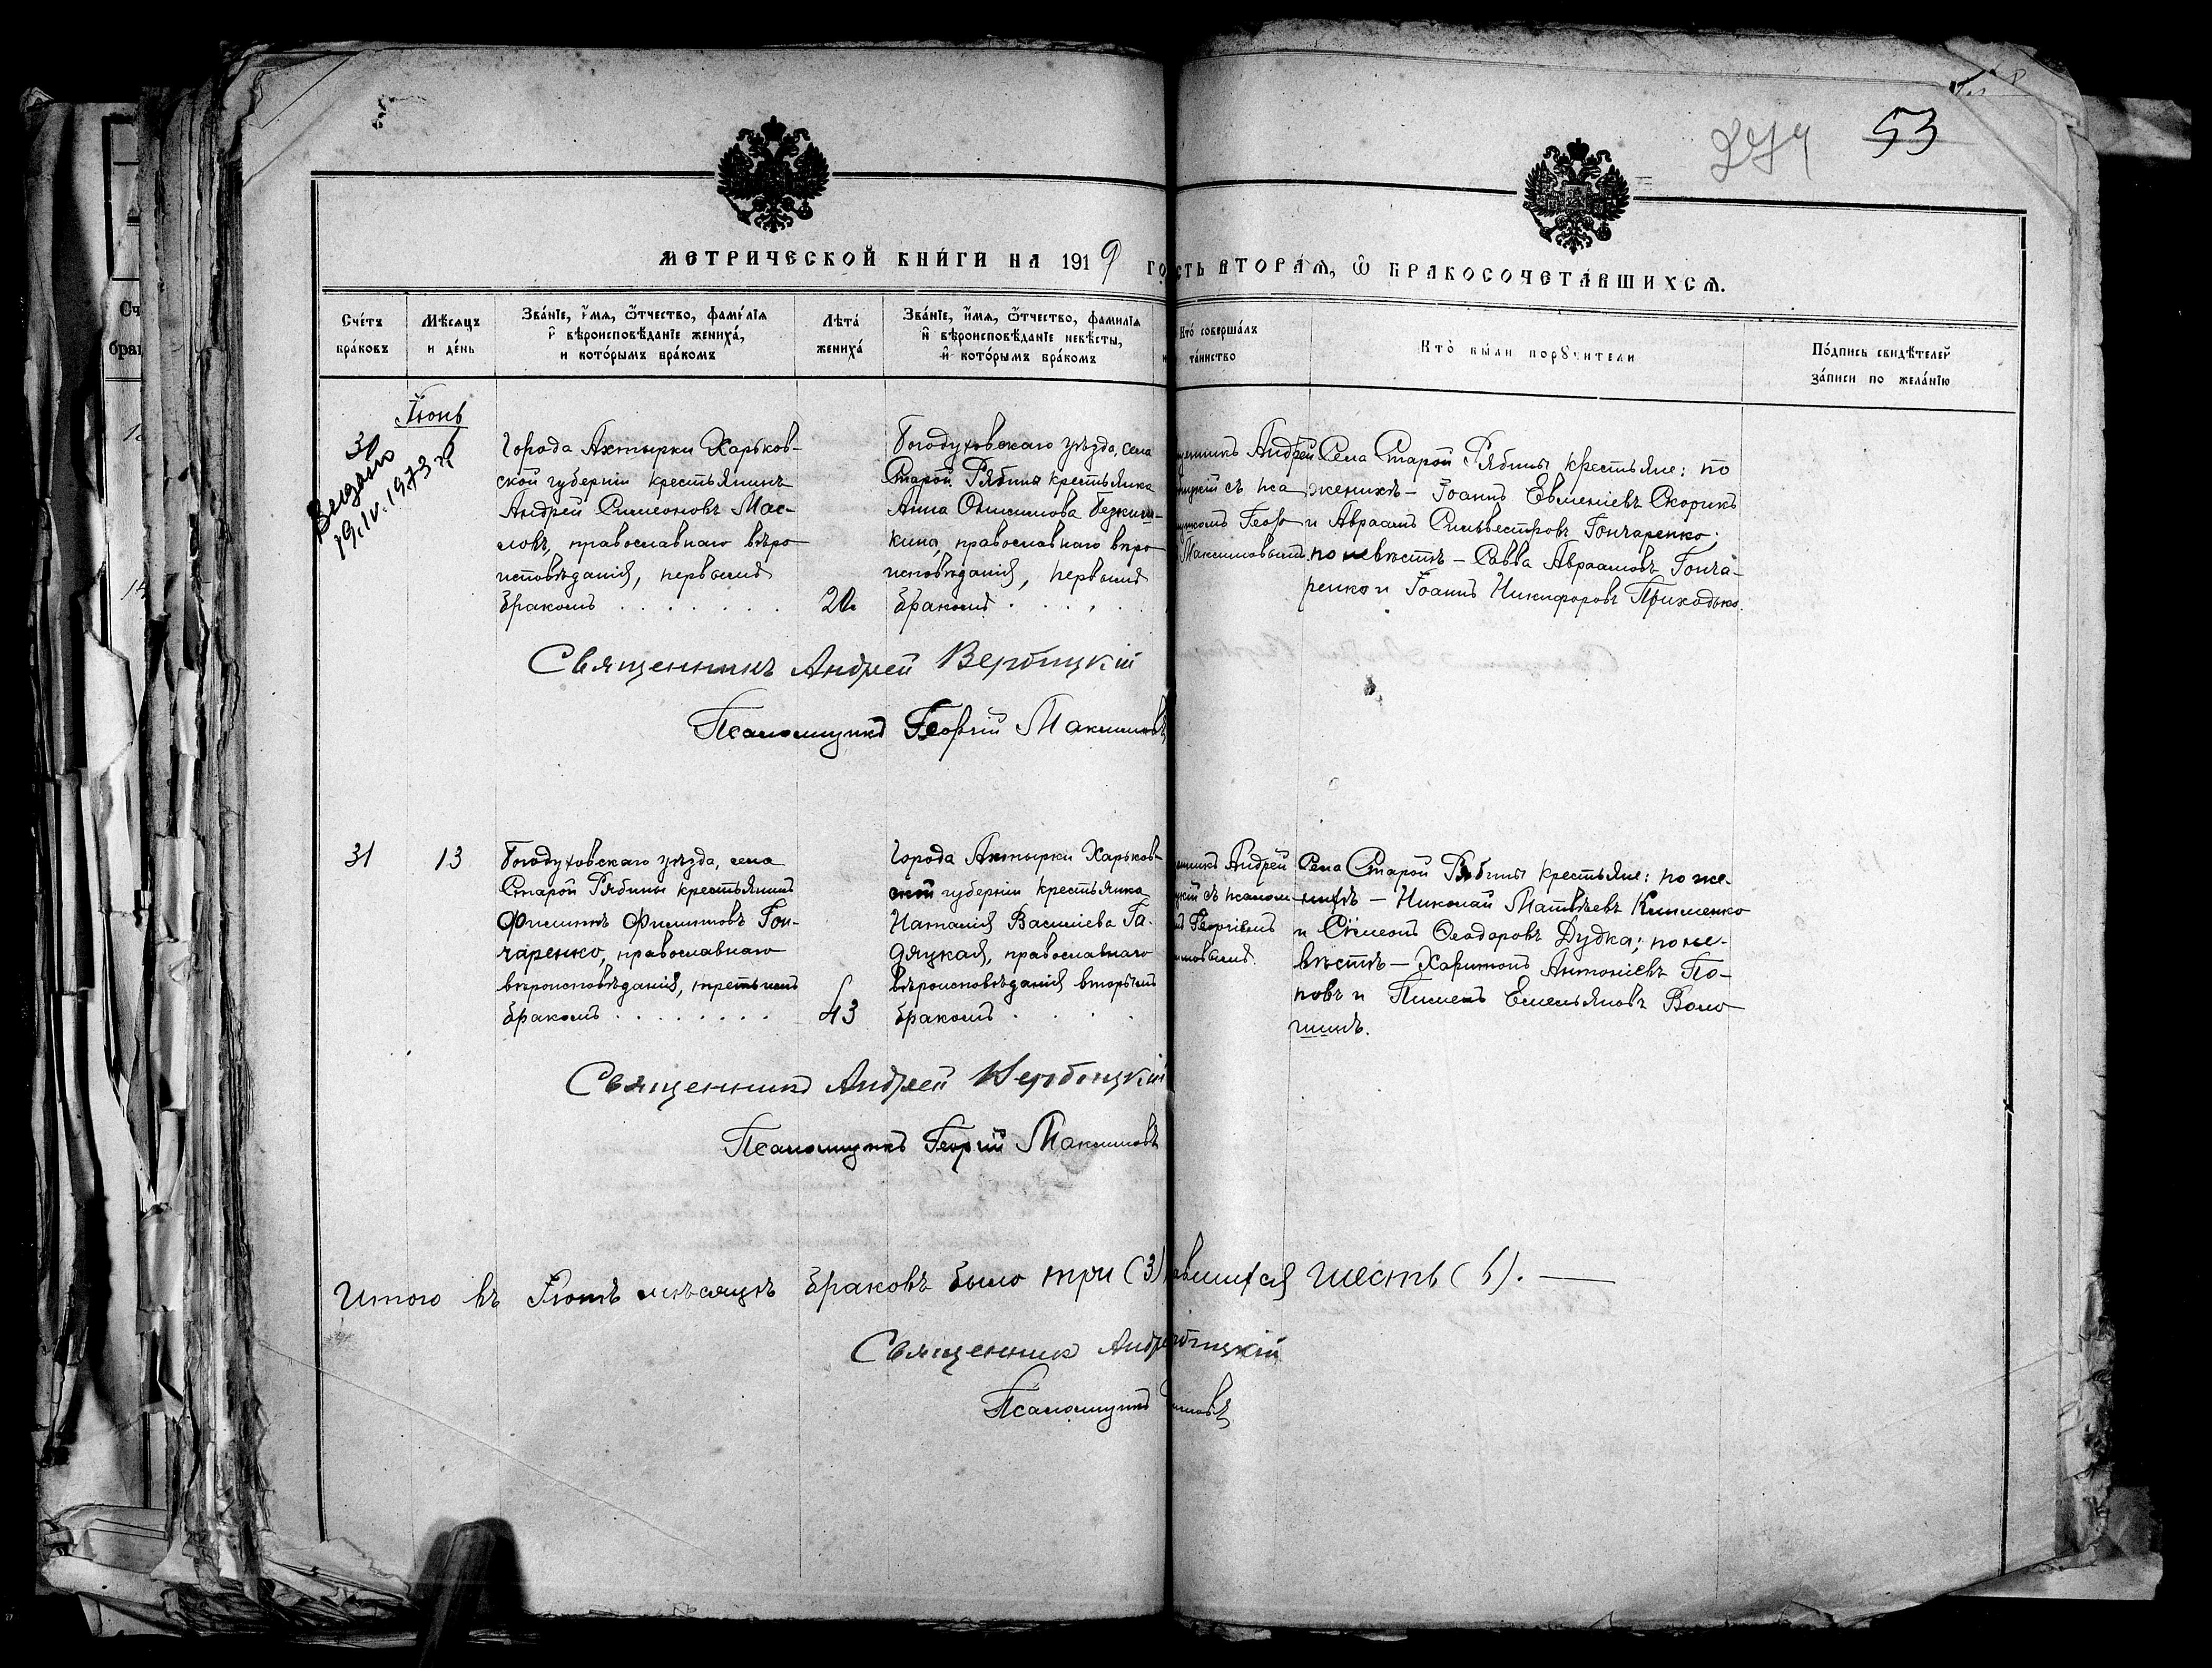 274 53
МЕТРИЧЕСКОЙ КНИ́ГИ НА 1919 ГО
СТЬ ВТОРАѦ, Ѿ БРАКОСОЧЕТА́ВШИХСѦ.
Сче́тъ бра́ковъ
Мѣ́сяцъ и де́нь
Зва́нїе, и҆́мя, ѻ҆́тчество, фами́лїя
и҆ вѣроисповѣ́данїе жениха́,
и кото́рымъ бра́комъ
Лѣта́ жениха́
Зва́нїе, и҆́мя, ѻ҆́тчество, фами́лїя
и҆ вѣроисповѣ́данїе невѣ́сты,
и҆ кото́рымъ бра́комъ
Кто́ соверша́лъ
та́инство
Кто́ бы́ли порꙋчители
По́дпись свидѣ́телей
за́писи по жела́нїю
Іюнь
30
Видано
19.IV.1973 г.
Города Ахтырки Харьков-
ской губерніи крестьянинъ
Андрей Симеоновъ Мас-
ловъ, православнаго вѣро
исповѣданія, первымъ
бракомъ . . . . . . .
20
Богодуховскаго уѣзда, села
Старой Рябины крестьянка
Анна Онисимова Безкиш-
кина, православнаго вѣро
исповѣданія, первымъ
бракомъ . . . .
щенникъ Андрей
бицкій съ пса
щикомъ Геор
Максимовымъ
Села Старой Рябины крестьяне: по
женихѣ – Іоаннъ Евменіевъ Скорикъ
и Авраамъ Сильвестровъ Гончаренко;
по невѣстѣ – Савва Авраамовъ Гонча-
ренко и Іоаннъ Никифоровъ Приходько.
Священникъ Андрей Вербицкій
Псаломщикъ Георгій Максимовъ
31
13
Богодуховскаго уѣзда, села
Старой Рябины крестьянинъ
Филиппъ Филипповъ Гон-
чаренко, православнаго
вѣроисповѣданія, третьимъ
бракомъ . . . . . . . .
43
Города Ахтырки Харьков-
ской губерніи крестьянка
Наталія Василіева Га-
дяцкая, православнаго
вѣроисповѣданія вторымъ
бракомъ . . . .
енникъ Андрей
цкій съ псалом
ъ Георгіемъ
имовымъ.
Села Старой Рябины крестьяне: по же-
нихѣ – Николай Матвѣевъ Клименко
и Симеонъ Ѳеодоровъ Дудка; по не-
вѣстѣ – Харитонъ Антоніевъ По-
повъ и Пименъ Емельяновъ Воло-
шинъ.
Священникъ Андрей Вербицкій
Псаломщикъ Георгій Максимовъ
Итого въ Іюнѣ мѣсяцѣ браковъ было три (3)
авшихся шесть (6). —
Священникъ Андре
рбицкій
Псаломщикъ
имовъ